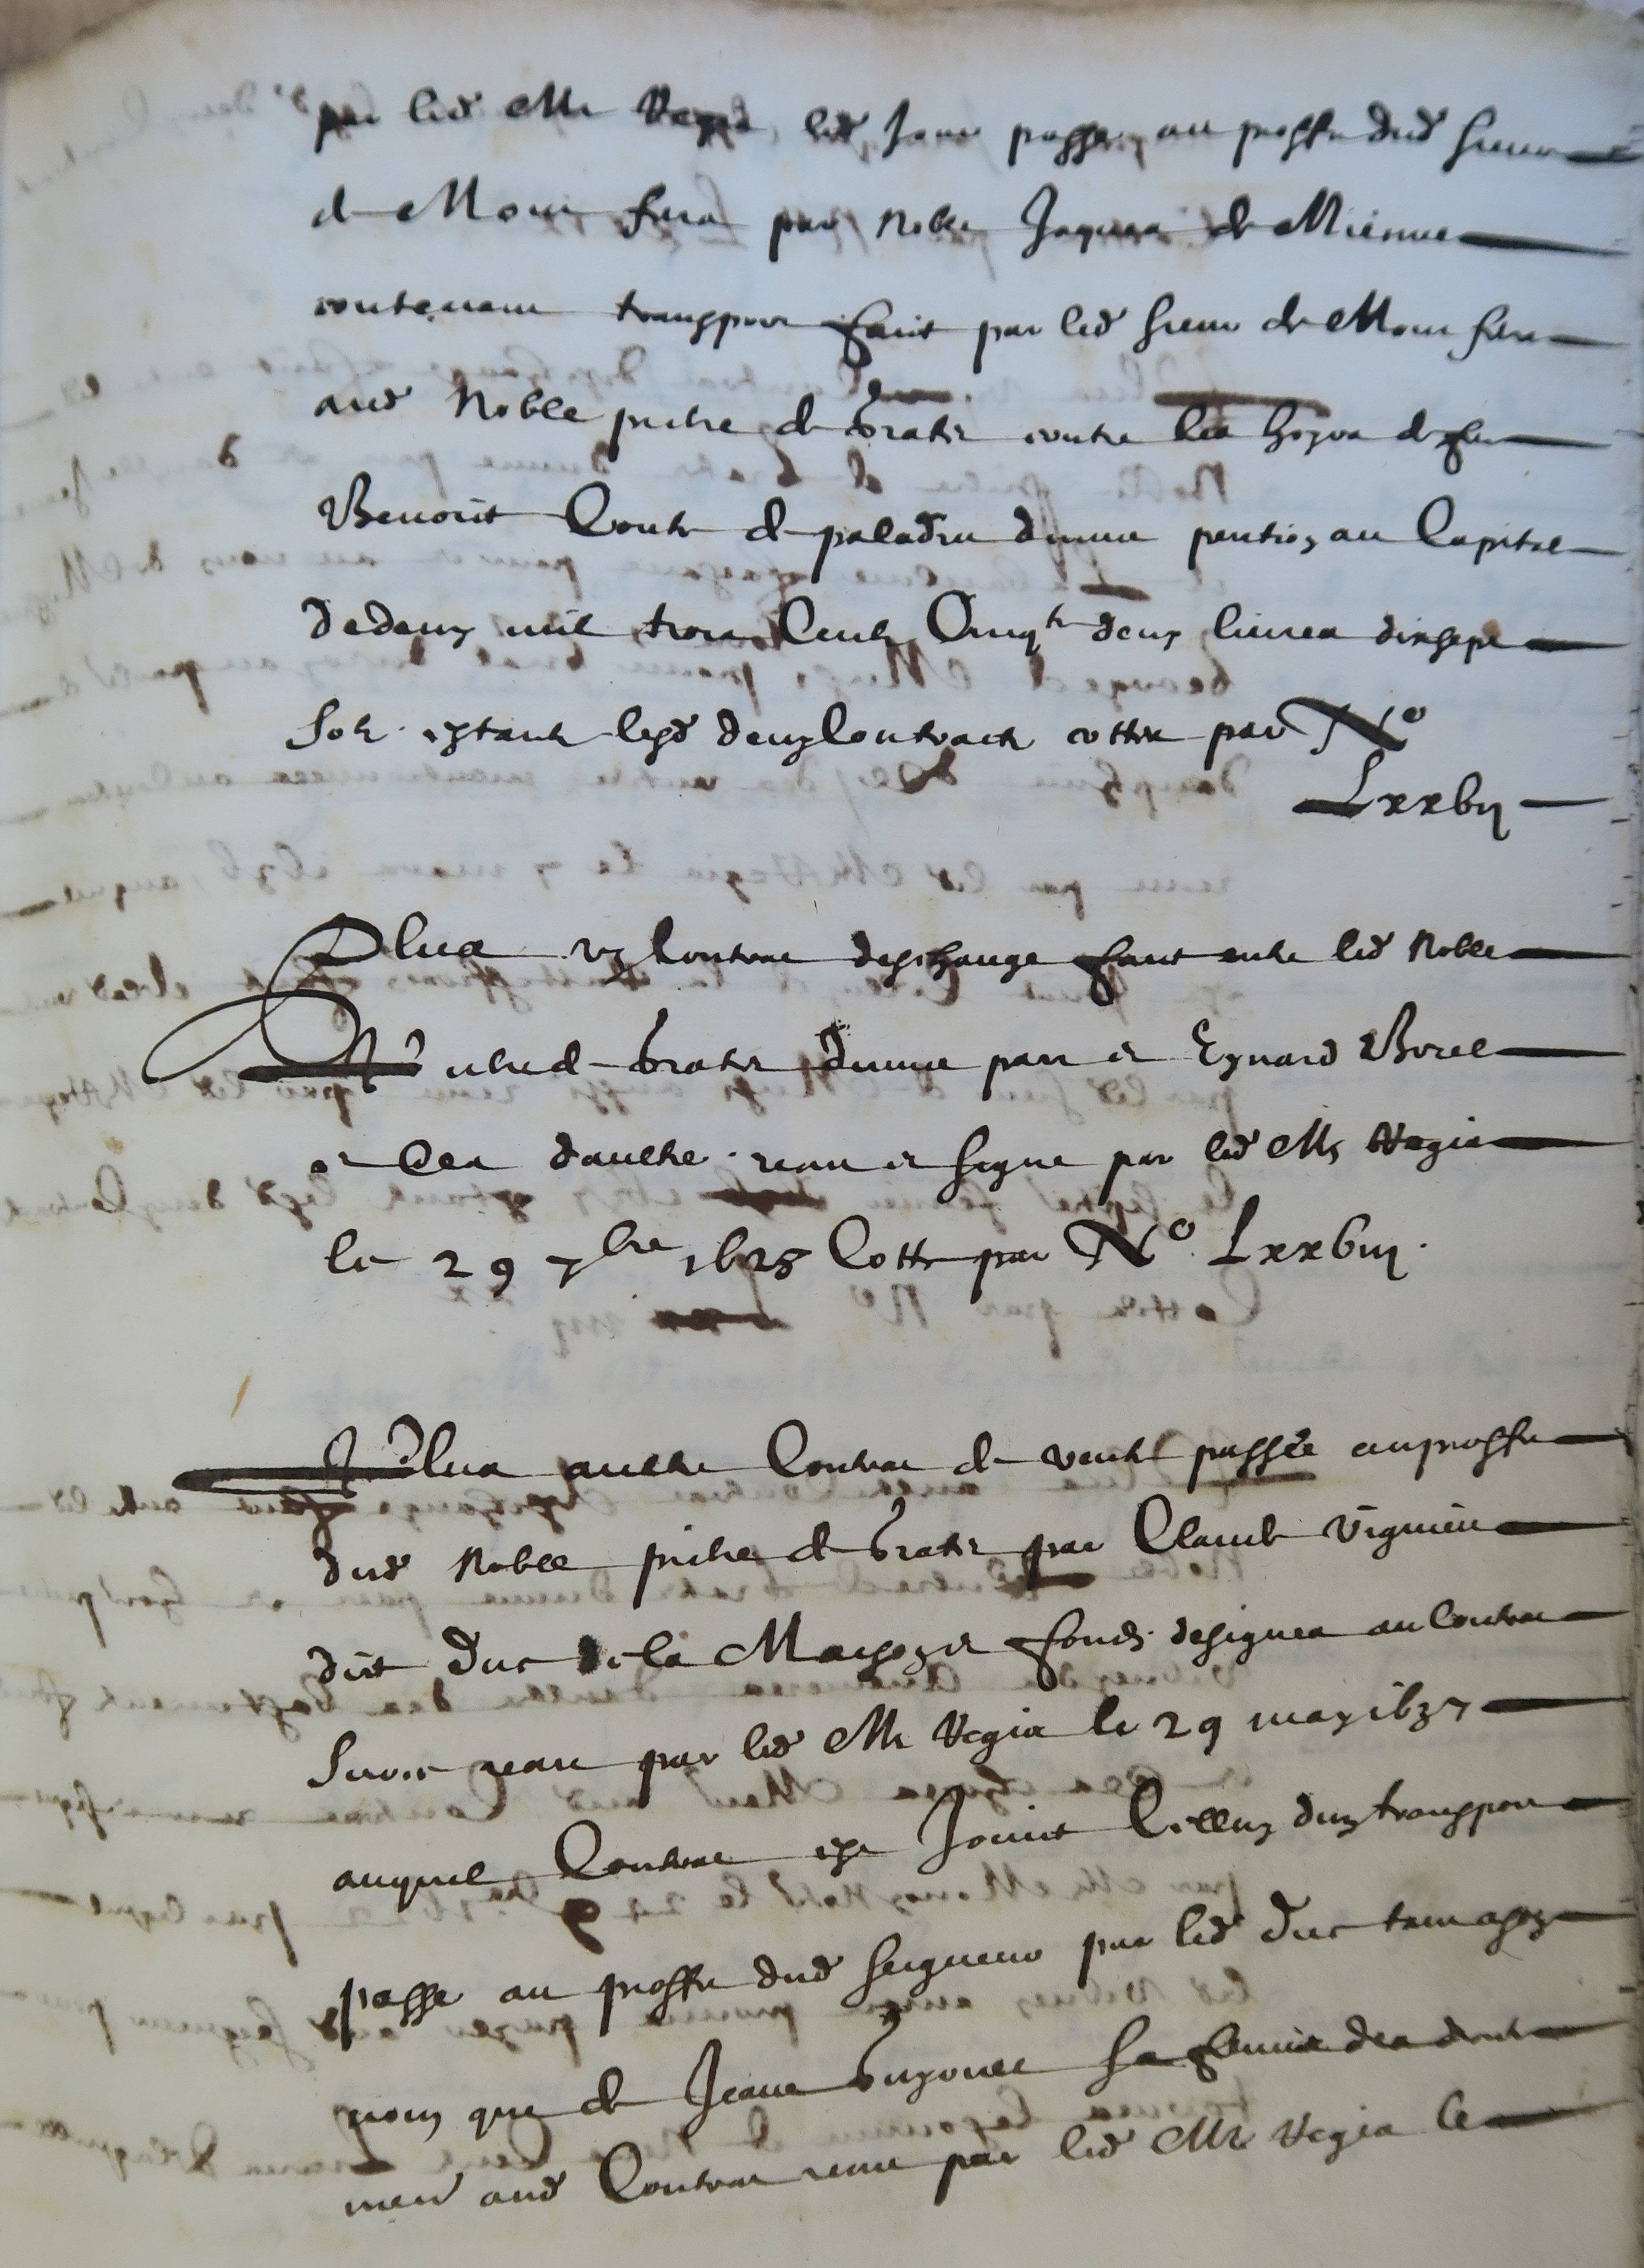 par led Me Regis led Jour passe, au proffit dud sieur
de Mon fera par Noble Jaques de Mienne
contenant transport fait par led sieur de Mon fera
aud Noble pierre de bratier contre les hoyrs de feu
Benoist Conte de paladru dune pention au Capital
de deux mil trois Centz Cinqte deux livres dixsept
solz estantz lesd deux Contractz cottes par No
Lxxvij
Plus vn Contrac deschange faict entre led Noble
pierre de bratier dune part et Eynard Borel
et Des daultre receu et signe par led Me Regis
le 29 7bre 1628 Cotte par No Lxxviij.
Plus aultre Contrac de vente passee au proffit
dud Noble pierre de bratier par Claude Viguier
dit Duc de la Mayson et fondz designes au Contrac
sur ce receu par led Me Regis le 29 may 1637
auquel Contrac est Joinct Celluy dun transport
passe au proffit dud seigneur par led Duc tam a son
nom que de Jeane buyonet sa femme des droitz
men aud Contrac receu par led Me Regis le